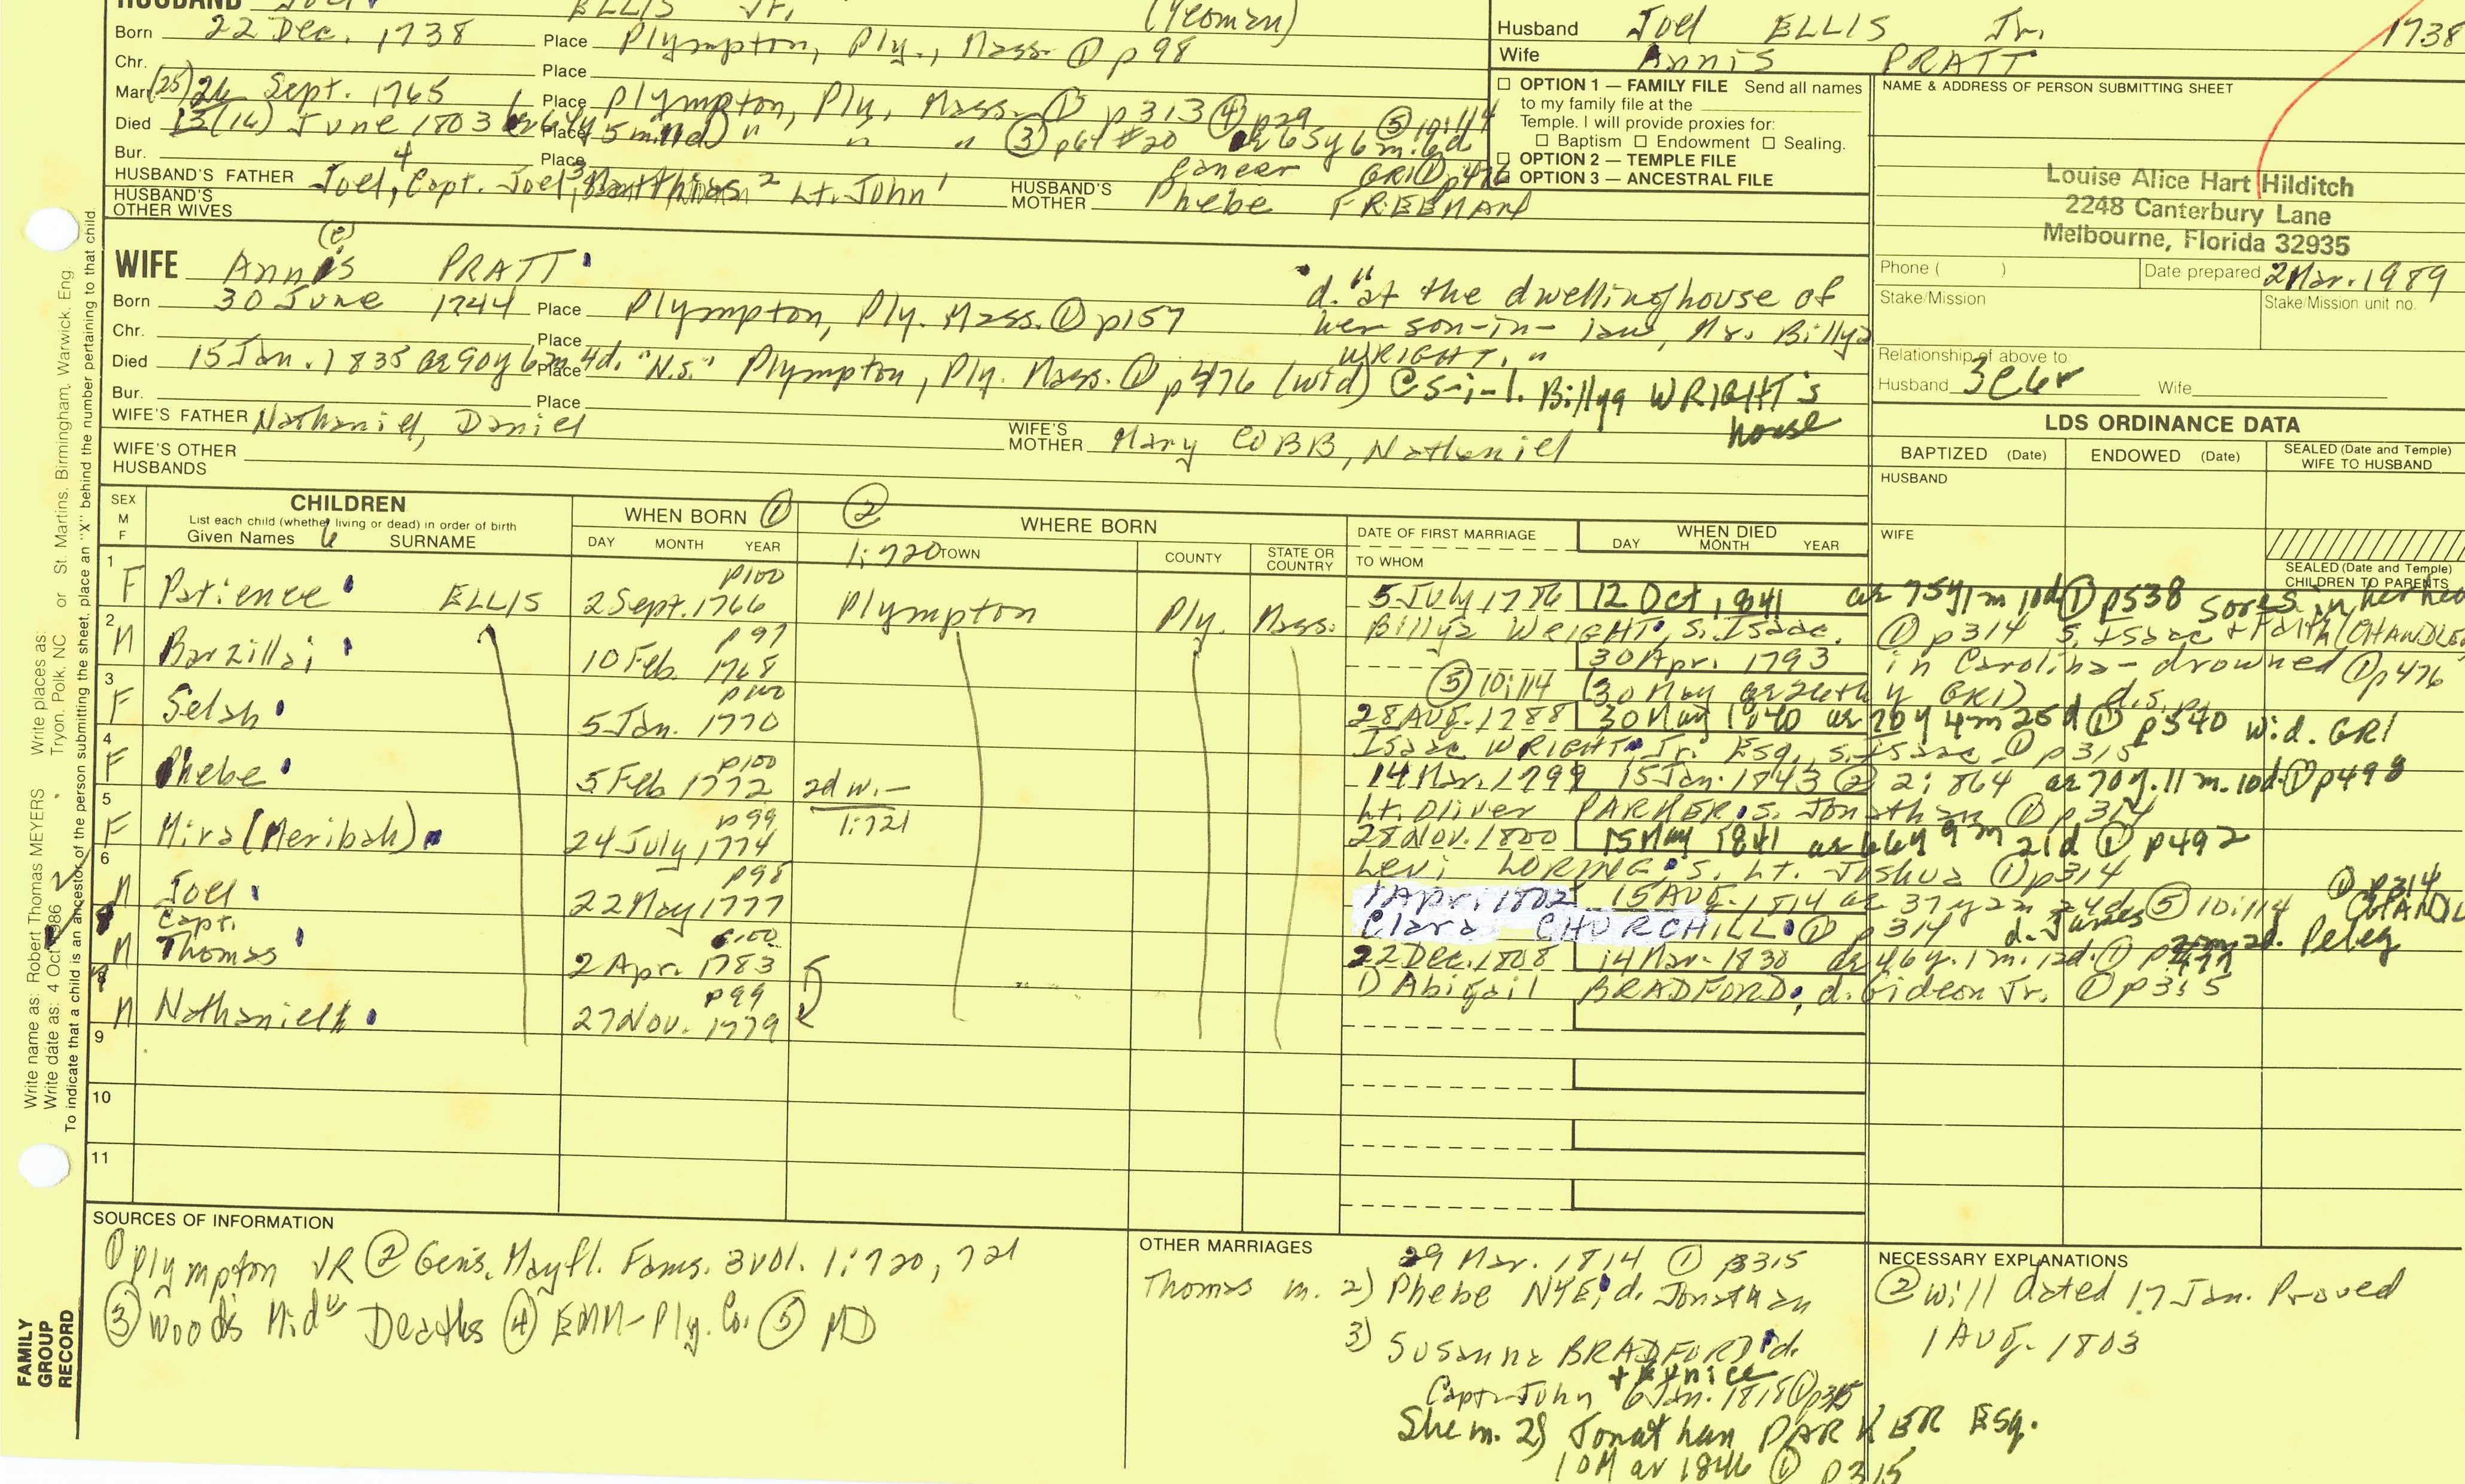 HUSBAND ELLIS Jr. (Yeoman)
Born 22 Dec. 1738 Place Plympton, Ply., Mass. ① p 98
Chr. Place
Marr (25) 26 Sept. 1765 Place Plympton, Ply, Mass. ① p313 ④ p29
Died 13 (14) June 1803 Place " " " ③ p64 #20 ae 65y 6m. 6d ⑤ 10:114
Bur. Place cancer GRI ① p476
HUSBAND'S FATHER Joel,⁴ Capt. Joel,³ Matthias² Lt. John¹ HUSBAND'S MOTHER Phebe FREEMAN
HUSBAND'S OTHER WIVES
WIFE Annis (e) PRATT
Born 30 June 1744 Place Plympton, Ply. Mass. ① p157
"d. "at the dwellinghouse of
her son-in-law, Mr. Billya
WRIGHT."
Chr. Place
Died 15 Jan. 1835 ae 90y 6m 4d. "N.S." Place Plympton, Ply. Mass. ① p476 (wid) @ s-i-l. Billya WRIGHT's
house
Bur. Place
WIFE'S FATHER Nathaniel, Daniel WIFE'S MOTHER Mary COBB, Nathaniel
WIFE'S OTHER HUSBANDS
Husband Joel ELLIS Jr. 1738
Wife Annis PRATT
☐ OPTION 1 — FAMILY FILE Send all names
to my family file at the
Temple. I will provide proxies for:
☐ Baptism ☐ Endowment ☐ Sealing.
☐ OPTION 2 — TEMPLE FILE
☐ OPTION 3 — ANCESTRAL FILE
NAME & ADDRESS OF PERSON SUBMITTING SHEET
Louise Alice Hart Hilditch
2248 Canterbury Lane
Melbourne, Florida 32935
Phone ( ) Date prepared 2 Mar. 1989
Stake/Mission Stake/Mission unit no.
Relationship of above to:
Husband 3C6r Wife
LDS ORDINANCE DATA
BAPTIZED (Date) ENDOWED (Date) SEALED (Date and Temple) WIFE TO HUSBAND
HUSBAND
WIFE
SEALED (Date and Temple) CHILDREN TO PARENTS
SEX M F
CHILDREN
List each child (whether living or dead) in order of birth
Given Names SURNAME
WHEN BORN ① ②
DAY MONTH YEAR
WHERE BORN
1:720 TOWN COUNTY STATE OR COUNTRY
DATE OF FIRST MARRIAGE
TO WHOM
WHEN DIED
DAY MONTH YEAR
1 F Patience ELLIS p100 2 Sept. 1766 Plympton Ply. Mass. 5 July 1786 12 Oct, 1841 ae 75y 1m 10d ① p538 sores in her
Billya WRIGHT, s. Isaac. ① p314 s. Isaac + Faith (CHANDLE
2 M Barzillai p97 10 Feb. 1768 30 Apr. 1793 in Carolina - drowned ① p476
⑤ 10:114 (30 May GRI) d.s.p.
3 F Selah p100 5 Jan. 1770 28 Aug. 1788 30 May 1840 ae 70y 4m 25d ① p540 wid. GRI
Isaac WRIGHT Jr. Esq., s. Isaac ① p315
4 F Phebe p100 5 Feb 1772 2d w. — 1:721 14 Mar. 1799 15 Jan. 1843 ② 2:864 ae 70y. 11m. 10d. ① p498
Lt. Oliver PARKER, s. Jonathan ① p314
5 F Mira (Meribah) p99 24 July 1774 28 Nov. 1800 15 May 1841 ae 66y 9m 21d ① p492
Levi LORING, s. Lt. Joshua ① p314
6 M Joel p98 22 May 1777 1 Apr. 1802 15 Aug. 1814 ae 37y 2m 24d ⑤ 10:114 ① p314
Clara CHURCHILL ① p314 d. James
M Capt. Thomas p100 2 Apr. 1783 22 Dec. 1808 14 Mar. 1830 ae 46y. 1m. 12d. ① Peleg
1) Abigail BRADFORD, d. Gideon Jr. ① p315
8 M Nathaniel p99 27 Nov. 1779
9
10
11
SOURCES OF INFORMATION
① Plympton VR ② Gens. Mayfl. Fams. 3 vol. 1:720, 721
③ Wood's Mid Deaths ④ EMM-Ply. Co. ⑤ MD
OTHER MARRIAGES
29 Mar. 1814 ① p315
Thomas m. 2) Phebe NYE, d. Jonathan
3) Susanna BRADFORD d.
+ Eunice
Capt. John 6 Jan. 1818 ① p315
She m. 2) Jonathan PARKER Esq.
10 Mar 1846 ① p315
NECESSARY EXPLANATIONS
② Will dated 17 Jan. Proved
1 Aug. 1803
Write name as: Robert Thomas MEYERS Write places as: Tryon, Polk, NC or St. Martins, Birmingham, Warwick, Eng
Write date as: 4 Oct 1986
To indicate that a child is an ancestor of the person submitting the sheet, place an "X" behind the number pertaining to that child.
FAMILY GROUP RECORD